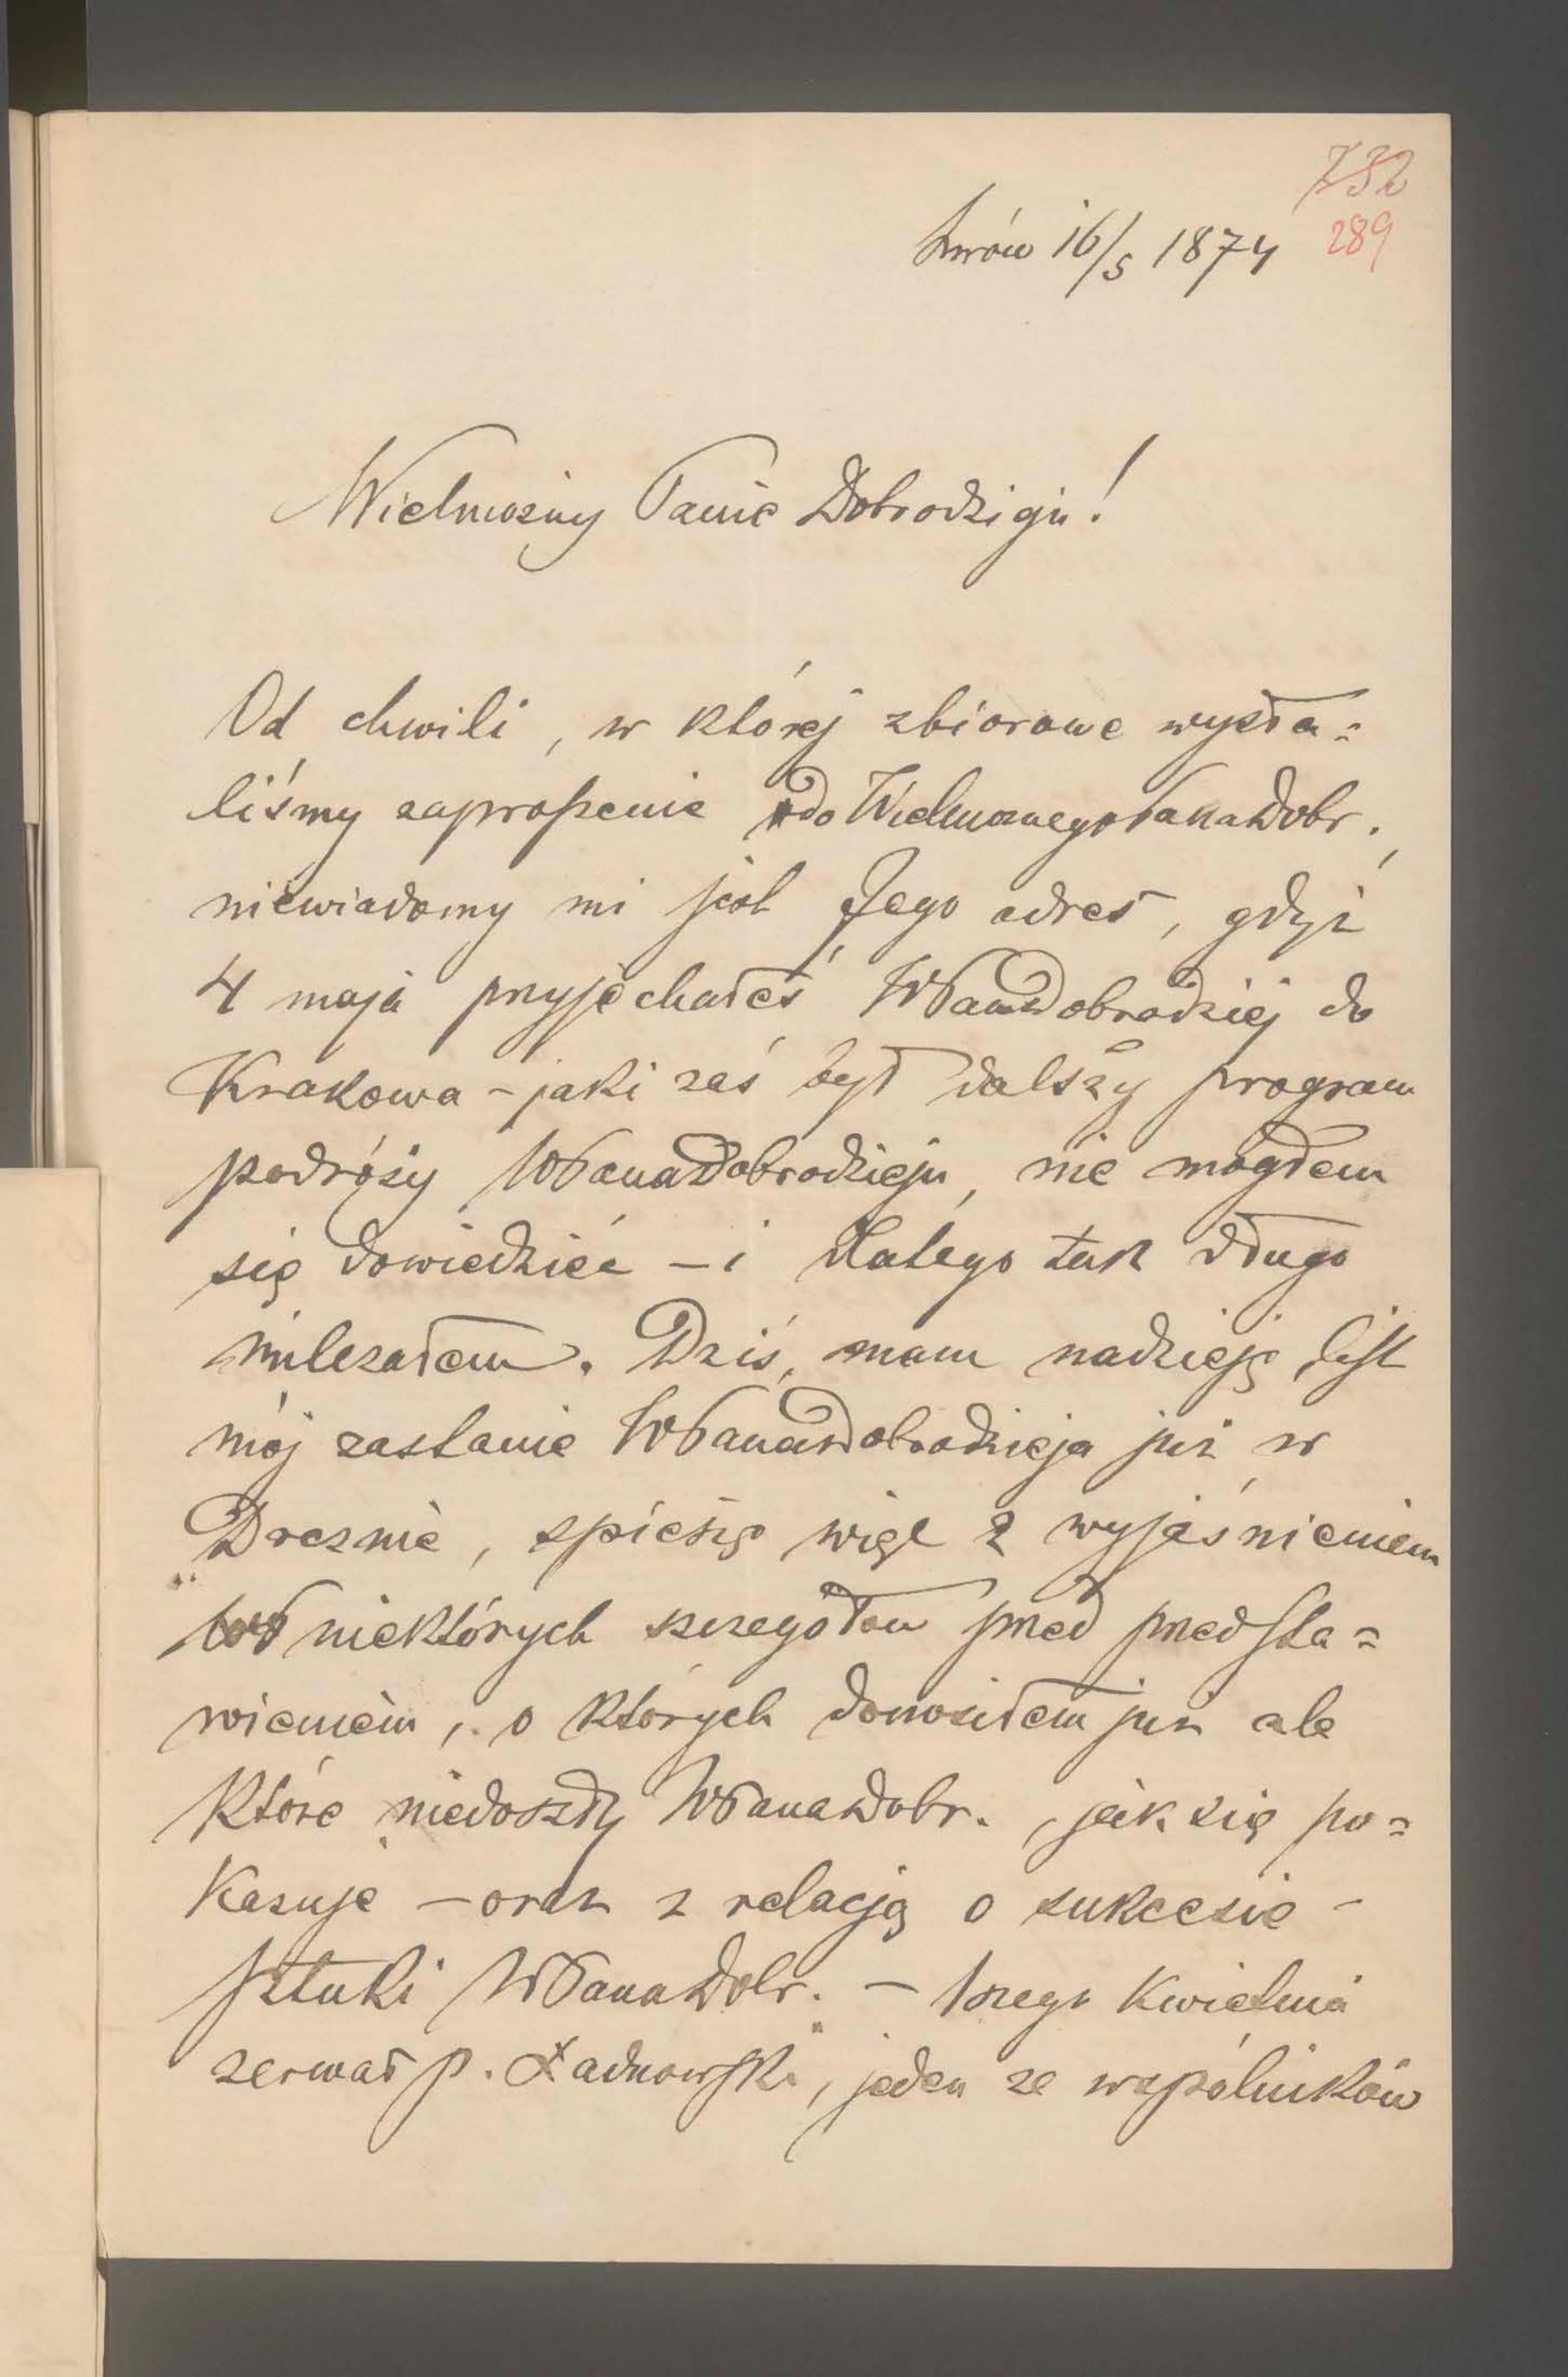 732
Lwów 16/5 1874
289
Wielmożny Panie Dobrodzieju!
Od chwili, w której zbiorowe wysła=
liśmy zaproszenie do Wielmożnego Pana Dobr.,
niewiadomy mi jest Jego adres, gdyż
4 maja przyjechałeś WPan Dobrodziej do
Krakowa – jaki zaś był dalszy program
podróży WPana Dobrodzieju, nie mogłem
się dowiedzieć – i dlatego tak długo
milczałem. Dziś, mam nadzieję, list
mój zastanie WPana Dobrodzieja już w
Dreznie, spieszę więc z wyjaśnieniem
niektórych szczegółów przed przedsta=
wieniem, o których donosiłem już ale
które niedoszły WPana Dobr., jak się po=
kazuje – oraz z relacją o sukcesie –
sztuki WPana Dobr. – 1szego Kwietnia
zerwał p. Ładnowski, jeden ze wspólników